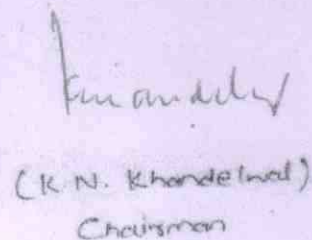 (K.N. Khandelwal)
Chairman